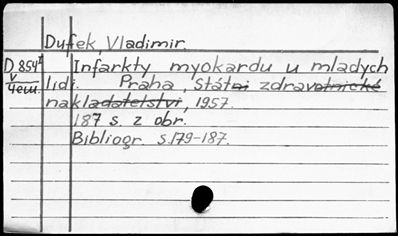 Dufek Vladimir.
D 854I Infarkty myokardu u mladych
v
4em. lidi. Praha, Státni zdravotnické
nakladatelstvi, 1957.
187 s. z obr.
Bibliogr. s.179-187.